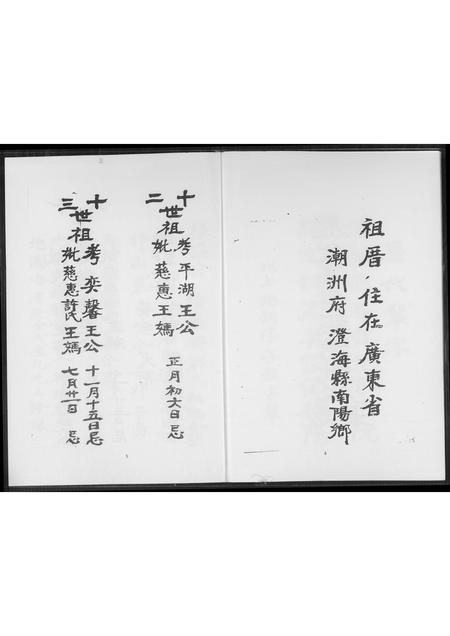 祖厝，住在廣東省
潮洲府 澄海縣南陽鄉
十二世祖考平湖王公
妣慈惠王媽 正月初六日忌
十三世祖考奕馨王公 十一月十五日忌
妣慈惠許氏王媽 七月廿一日 忌